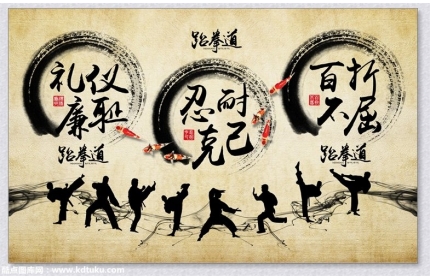 跆拳道
礼仪
廉耻
忍耐
克己
百折
不屈
跆拳道
跆拳道
www.kdtuku.com